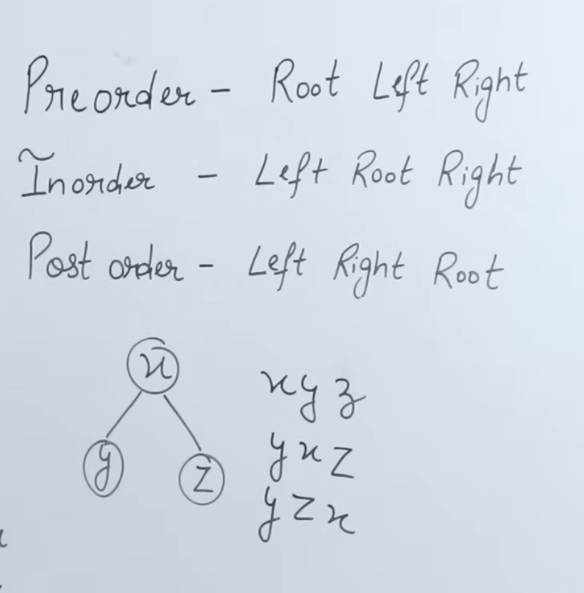 Preorder - Root Left Right
Inorder - Left Root Right
Post order - Left Right Root
x
y z
x y z
y x z
y z x